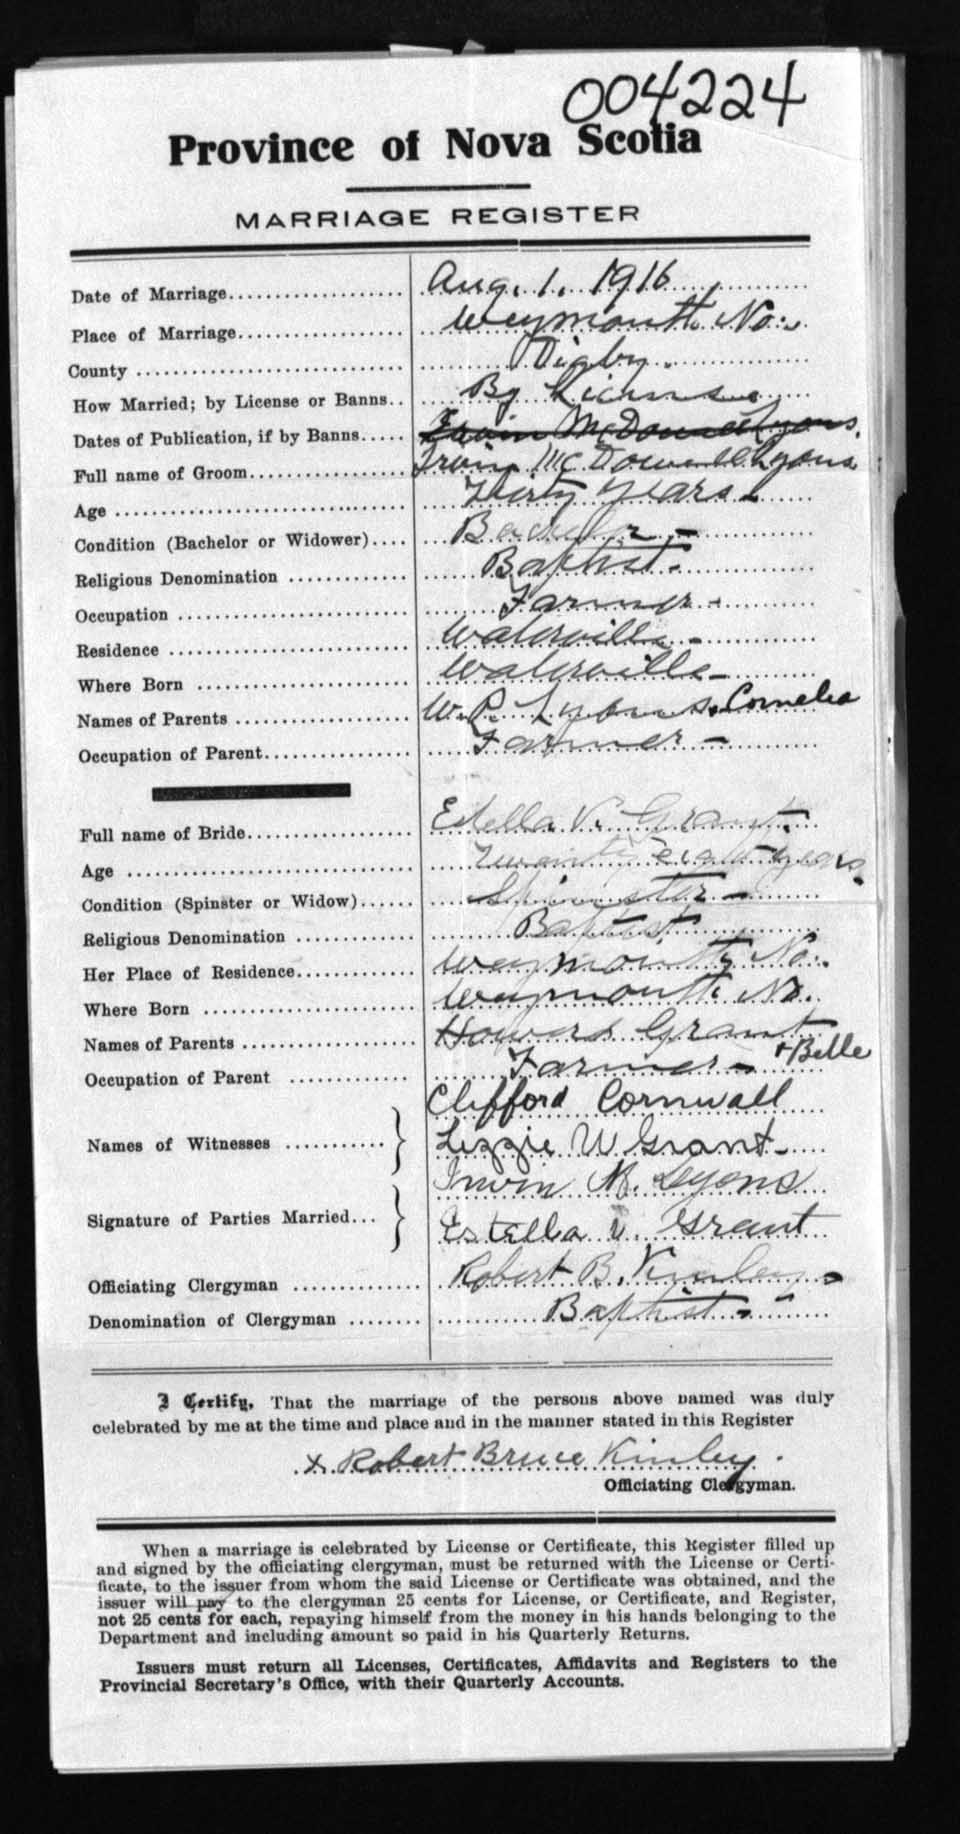 004224
Province of Nova Scotia
MARRIAGE REGISTER
Date of Marriage.................... Aug. 1. 1916
Place of Marriage................... Weymouth No.
County .............................. Digby.
How Married; by License or Banns.. By License
Dates of Publication, if by Banns..... Irvin McDowell Lyons.
Full name of Groom................... Irvin McDowell Lyons
Age .................................. Thirty Years -
Condition (Bachelor or Widower).... Bachelor -
Religious Denomination ............. Baptist -
Occupation ......................... Farmer -
Residence .......................... Waterville -
Where Born ........................ Waterville -
Names of Parents .................. W. P. Lyons. Cornelia
Occupation of Parent................ Farmer -
Full name of Bride................... Estella V. Grant.
Age ................................ Twenty eight years.
Condition (Spinster or Widow)...... Spinster -
Religious Denomination ............ Baptist
Her Place of Residence............. Weymouth No.
Where Born ....................... Weymouth No.
Names of Parents .................. Howard Grant
+ Belle
Occupation of Parent ............. Farmer -
Clifford Cornwall
Names of Witnesses ........... } Lizzie W Grant
Irvin M. Lyons
Signature of Parties Married... } Estella V. Grant
Officiating Clergyman ............. Robert B. Kinley -
Denomination of Clergyman ........ Baptist -
I Certify, That the marriage of the persons above named was duly
celebrated by me at the time and place and in the manner stated in this Register
x Robert Bruce Kinley.
Officiating Clergyman.
When a marriage is celebrated by License or Certificate, this Register filled up
and signed by the officiating clergyman, must be returned with the License or Certi-
ficate, to the issuer from whom the said License or Certificate was obtained, and the
issuer will pay to the clergyman 25 cents for License, or Certificate, and Register,
not 25 cents for each, repaying himself from the money in his hands belonging to the
Department and including amount so paid in his Quarterly Returns.
Issuers must return all Licenses, Certificates, Affidavits and Registers to the
Provincial Secretary's Office, with their Quarterly Accounts.